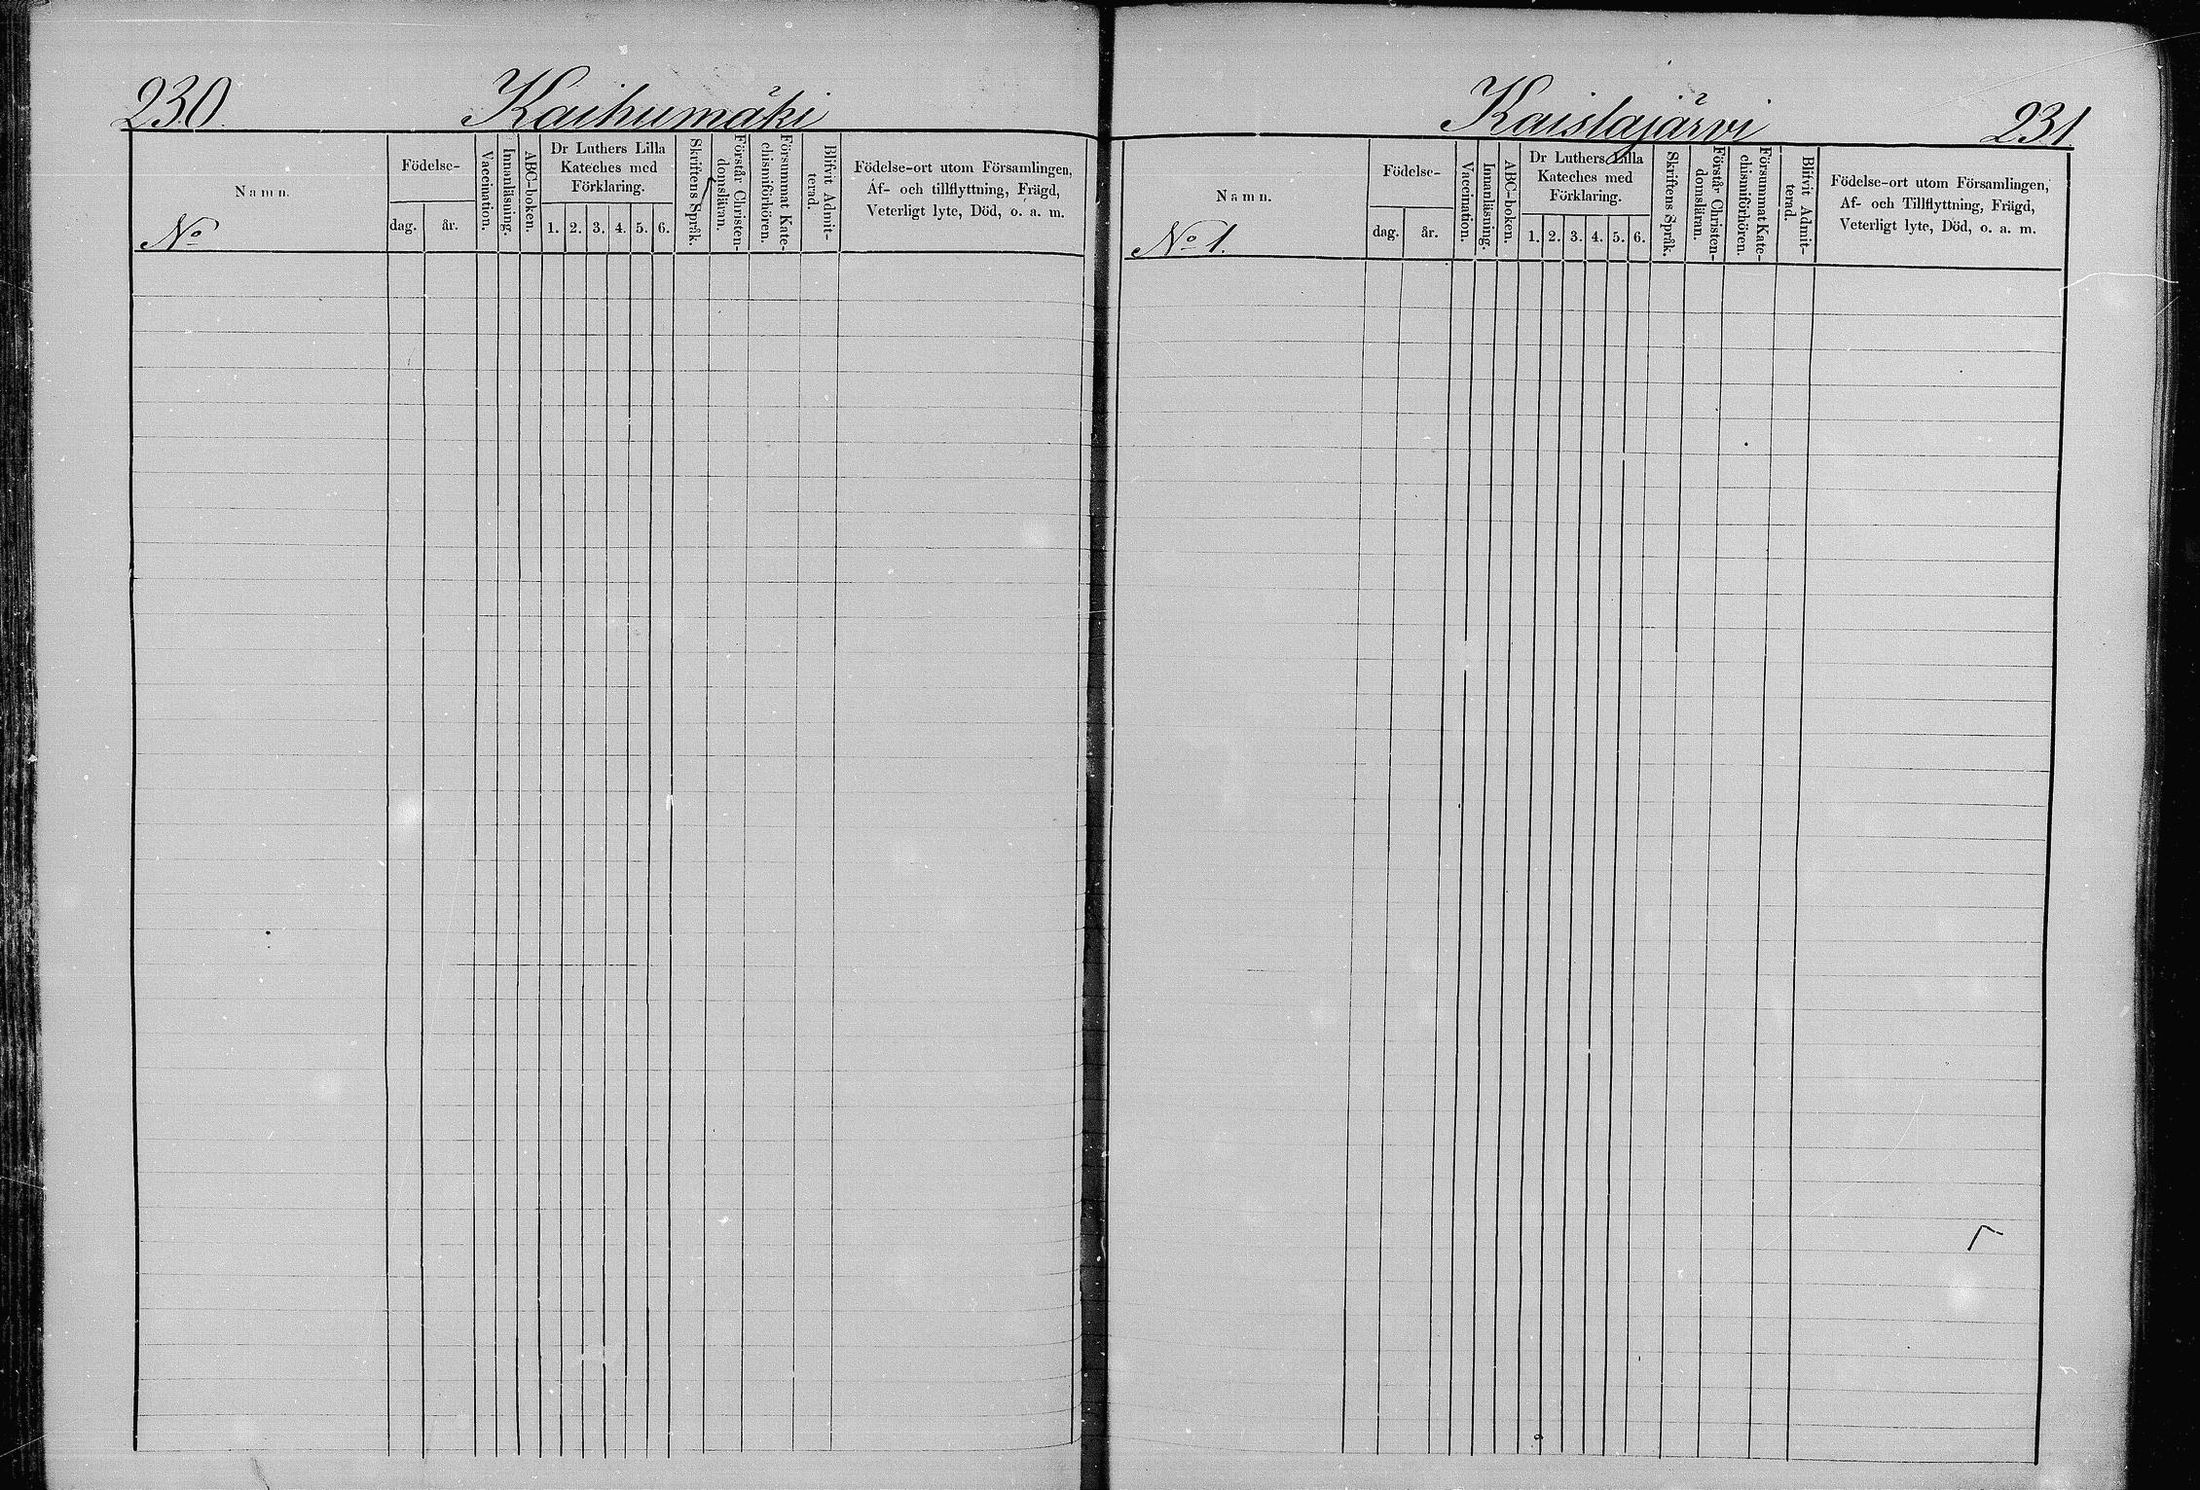 230. Kaihumäki
Namn.
Födelse-
dag.
år.
Vaccination.
Innanläsning.
ABC-boken.
Dr Luthers Lilla
Kateches med
Förklaring.
1. 2. 3. 4. 5. 6.
Skriftens Språk.
Förstår Christen-
domsläran.
Försummat Kate-
chismiförhören.
Blifvit Admit-
terad.
Födelse-ort utom Församlingen,
Af- och tillflyttning, Frägd,
Veterligt lyte, Död, o. a. m.
No
Kaislajärvi 231.
Namn.
Födelse-
dag.
år.
Vaccination.
Innanläsning.
ABC-boken.
Dr Luthers Lilla
Kateches med
Förklaring.
1. 2. 3. 4. 5. 6.
Skriftens Språk.
Förstår Christen-
domsläran.
Försummat Kate-
chismiförhören.
Blifvit Admit-
terad.
Födelse-ort utom Församlingen,
Af- och Tillflyttning, Frägd,
Veterligt lyte, Död, o. a. m.
No 1.